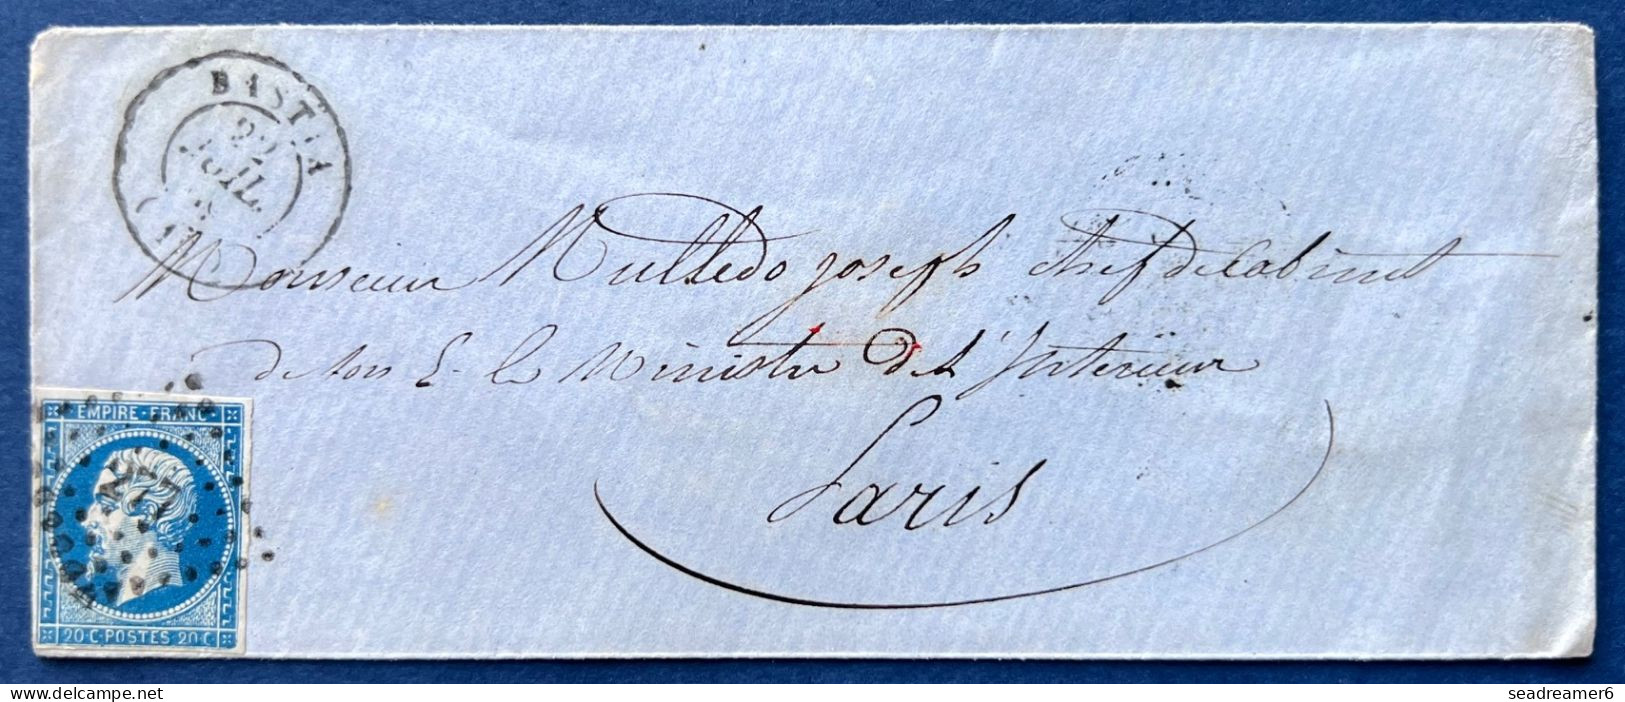 BASTIA
22
JUIL.
Monsieur Multedo joseph chef de Cabinet
de son E. le Ministre de l'Interieur
Paris
EMPIRE·FRANC·
277
20 C·POSTES·20 C
seadreamer6